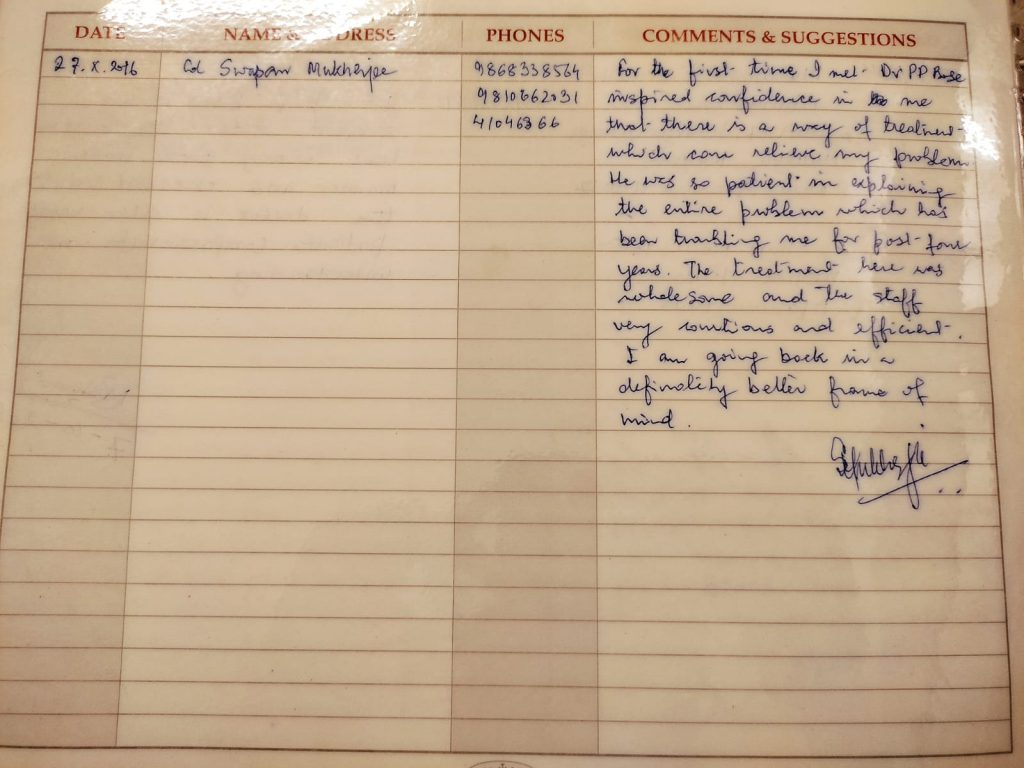 DATE NAME & ADDRESS PHONES COMMENTS & SUGGESTIONS
27.X.2016 Col Swapan Mukherjee 9868338564 For the first time I met Dr PP Bose
9810662031 inspired confidence in me
41046366 that there is a way of treatment
which can relieve my problem
He was so patient in explaining
the entire problem which has
been troubling me for past four
years. The treatment here was
wholesome and the staff
very courtious and efficient.
I am going back in a
definately better frame of
mind.
SMukherjee